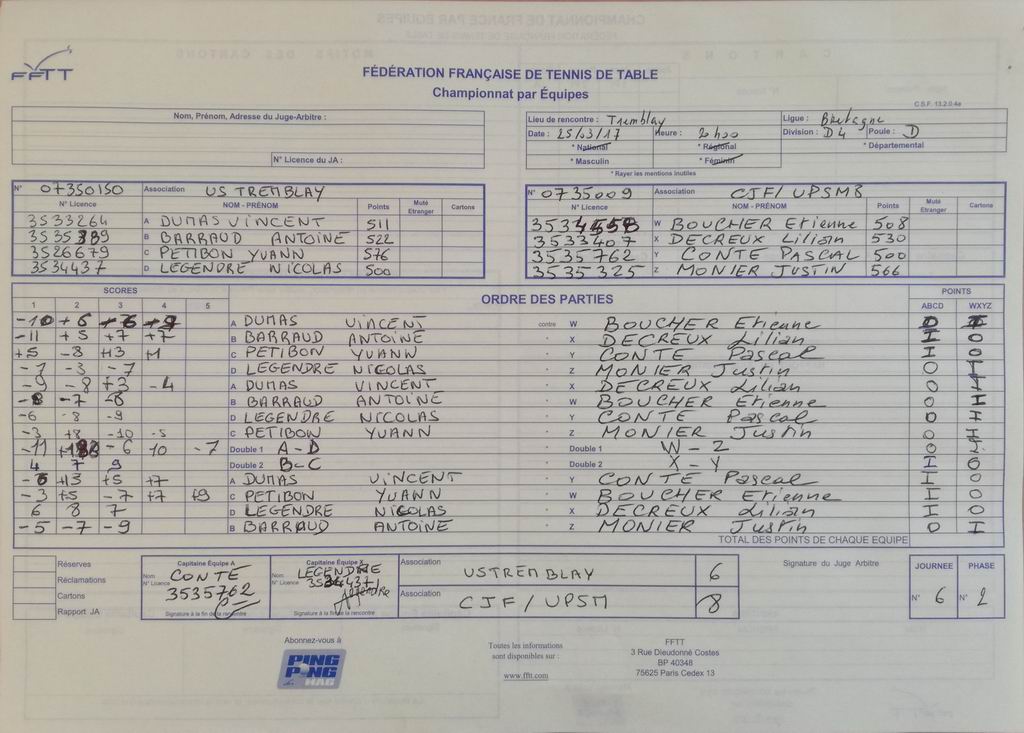 FFTT
FÉDÉRATION FRANÇAISE DE TENNIS DE TABLE
Championnat par Équipes
C.S.F. 13.2.0.4a
Nom, Prénom, Adresse du Juge-Arbitre :
N° Licence du JA :
Lieu de rencontre : Tremblay Ligue : Bretagne
Date : 25/03/17 Heure : 20h00 Division : D4 Poule : D
* National * Régional * Départemental
* Masculin * Féminin
* Rayer les mentions inutiles
N° 07350150 Association US TREMBLAY
N° Licence NOM - PRÉNOM Points Muté Etranger Cartons
3533264 A DUMAS VINCENT 511
B BARRAUD ANTOINE 522
3526679 C PETIBON YVANN 576
3534437 D LEGENDRE NICOLAS 500
N° 0735009 Association CJF/UPSM8
N° Licence NOM - PRÉNOM Points Muté Etranger Cartons
W BOUCHER Etienne 508
3533407 X DECREUX Lilian 530
3535762 Y CONTE PASCAL 500
3535325 Z MONIER JUSTIN 566
SCORES ORDRE DES PARTIES POINTS
1 2 3 4 5 ABCD WXYZ
-10 +6 A DUMAS VINCENT contre W BOUCHER Etienne
-11 +5 +7 +7 B BARRAUD ANTOINE " X DECREUX Lilian I 0
+5 -8 +13 +1 C PETIBON YVANN " Y CONTE Pascal I 0
-7 -3 -7 D LEGENDRE NICOLAS " Z MONIER Justin 0 I
-9 -8 +3 -4 A DUMAS VINCENT " X DECREUX Lilian 0 I
-7 B BARRAUD ANTOINE " W BOUCHER Etienne 0 I
-6 -8 -9 D LEGENDRE NICOLAS " Y CONTE Pascal 0 I
-3 +8 -10 -5 C PETIBON YVANN " Z MONIER Justin 0 I
-11 -6 10 -7 Double 1 A-D " Double 1 W-Z 0 I
4 7 9 Double 2 B-C " Double 2 X-Y I 0
-6 +13 +5 +7 A DUMAS VINCENT " Y CONTE Pascal I 0
-3 +5 -7 +7 +9 C PETIBON YVANN " W BOUCHER Etienne I 0
6 8 7 D LEGENDRE NICOLAS " X DECREUX Lilian I 0
-5 -7 -9 B BARRAUD ANTOINE " Z MONIER Justin 0 I
TOTAL DES POINTS DE CHAQUE EQUIPE
Réserves
Réclamations
Cartons
Rapport JA
Capitaine Équipe A
Nom CONTE
N° Licence 3535762
Signature à la fin de la rencontre
Capitaine Équipe X
Nom LEGENDRE
N° Licence 3534437
Signature à la fin de la rencontre
Association USTREMBLAY 6
Association CJF/UPSM 8
Signature du Juge Arbitre
JOURNEE PHASE
N° 6 N° 2
Abonnez-vous à
PING PONG MAG
Toutes les informations
sont disponibles sur :
www.fftt.com
FFTT
3 Rue Dieudonné Costes
BP 40348
75625 Paris Cedex 13